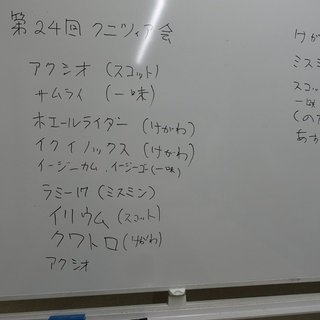 第24回 クニツィア会
アクシオ (スコット)
サムライ (一味)
ホエールライダー (けがわ)
イクイノックス (けがわ)
イージーカム、イージーゴー(一味)
ラミー17 (ミスミン)
イリウム (スコット)
クワトロ (けがわ)
アクシオ
けが
ミスミン
スコッ
一味
(のた
あか